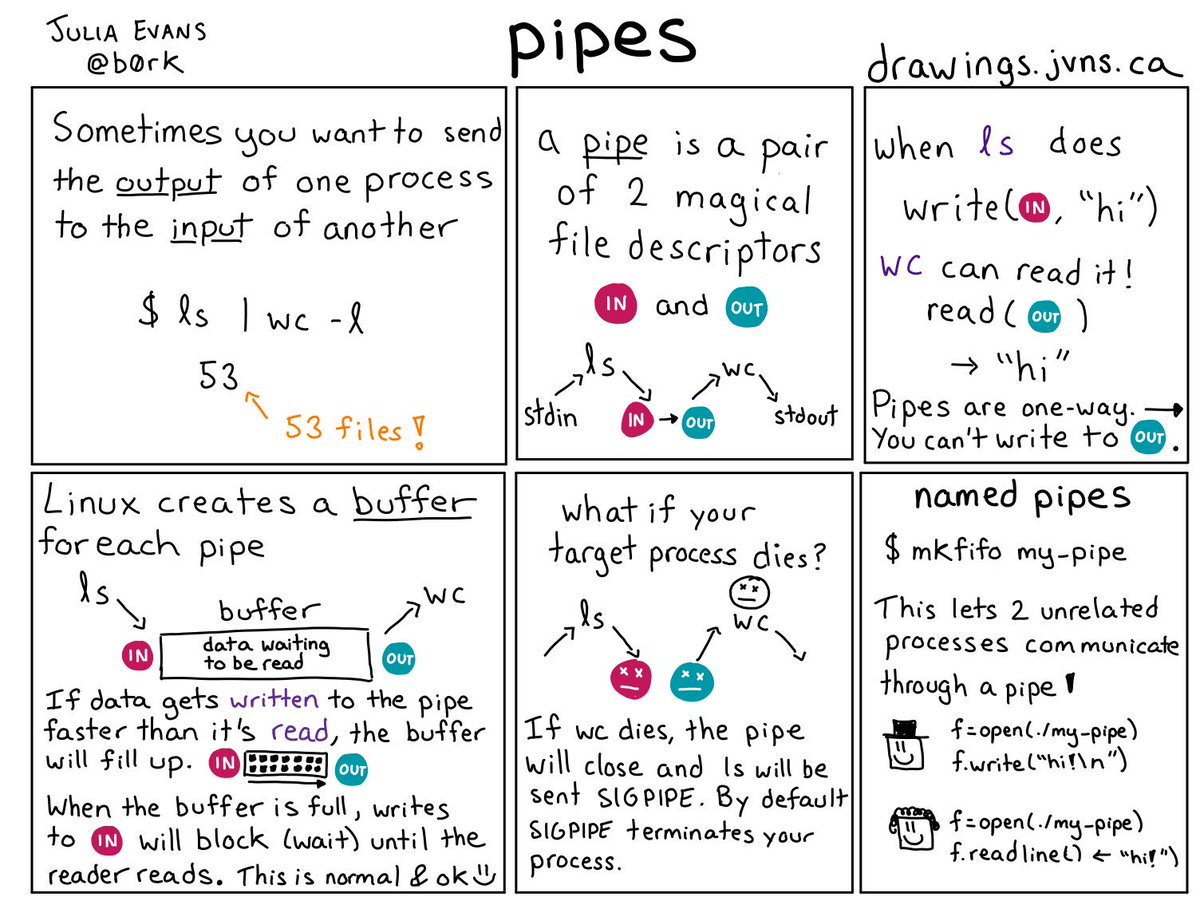 JULIA EVANS
@b0rk
pipes
drawings.jvns.ca
Sometimes you want to send
the output of one process
to the input of another
$ ls | wc -l
53
53 files!
a pipe is a pair
of 2 magical
file descriptors
IN and OUT
ls
wc
stdin
IN
OUT
stdout
when ls does
write(IN, "hi")
wc can read it!
read( OUT )
→ "hi"
Pipes are one-way. →
You can't write to OUT.
Linux creates a buffer
for each pipe
ls
buffer
wc
IN
data waiting
to be read
OUT
If data gets written to the pipe
faster than it's read, the buffer
will fill up. IN OUT
When the buffer is full, writes
to IN will block (wait) until the
reader reads. This is normal & ok
what if your
target process dies?
ls
wc
If wc dies, the pipe
will close and ls will be
sent SIGPIPE. By default
SIGPIPE terminates your
process.
named pipes
$ mkfifo my-pipe
This lets 2 unrelated
processes communicate
through a pipe!
f=open(./my-pipe)
f.write("hi!\n")
f=open(./my-pipe)
f.readline() ← "hi!")